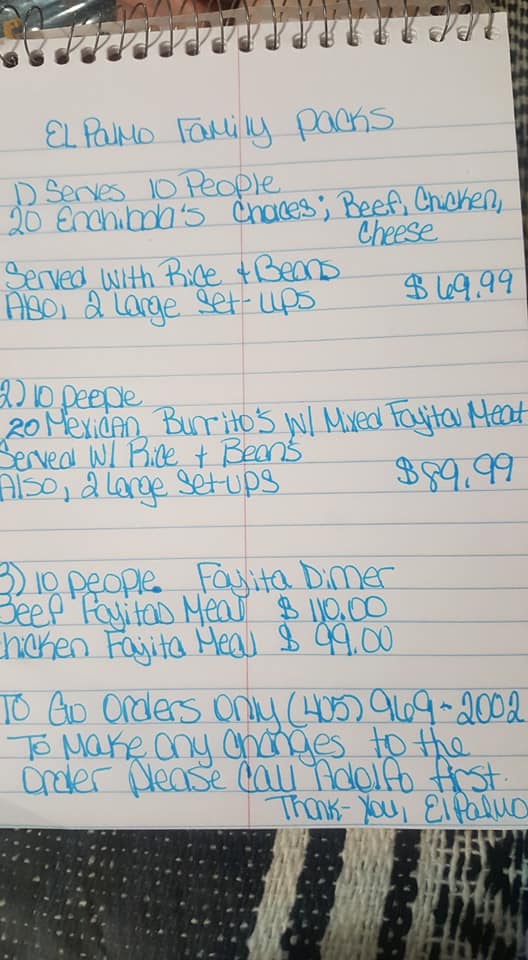 El Palmo Family Packs
1) Serves 10 People
20 Enchilada's Choices; Beef, Chicken,
Cheese
Served With Rice + Beans
Also, 2 Large Set-ups $69.99
2) 10 people
20 Mexican Burrito's W/ Mixed Fajita Meat
Served W/ Rice + Beans
Also, 2 Large Set-ups $89.99
3) 10 people Fajita Dinner
Beef Fajitas Meal $110.00
Chicken Fajita Meal $99.00
To Go Orders Only (405) 969-2002
To Make any changes to the
Order please call Adolfo first.
Thank-You, El Palmo